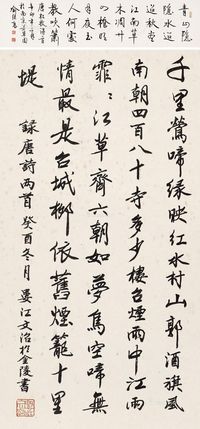 青山隱
隱水迢
迢秋盡
江南草
木凋廿
四橋明
月夜玉
人何處
教吹簫
千里鶯啼綠映紅水村山郭酒旗風
南朝四百八十寺多少樓台煙雨中江雨
霏霏江草齊六朝如夢鳥空啼無
情最是台城柳依舊煙籠十里
堤 録唐詩两首癸酉冬月婁江文治於金陵書